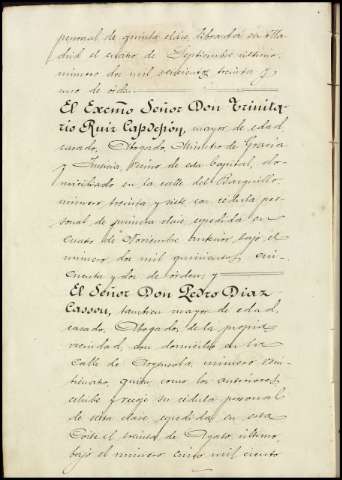 personal de quinta clase, librada en Ma-
drid el cuatro de Septiembre último,
número dos mil setecientos treinta y
uno de orden.
El Excmo Señor Don Trinita-
rio Ruiz Capdepón, mayor de edad,
casado, Abogado, Ministro de Gracia
y Justicia, vecino de esta Capital, do-
miciliado en la calle del Barquillo
número treinta y siete con cédula per-
sonal de primera clase, expedida en
cuatro de Noviembre anterior, bajo el
número dos mil quinientos cin-
cuenta y dos de orden; y
El Señor Don Pedro Diaz
Cassou, tambien mayor de edad,
casado, Abogado, de la propia
vecindad, con domicilio en la
calle de Argensola número vein-
ticuatro, quien, como los anteriores,
exhibe y recoje su cédula personal
de sexta clase, expedida en esta
Corte el treinta de Agosto último,
bajo el número cinco mil ciento